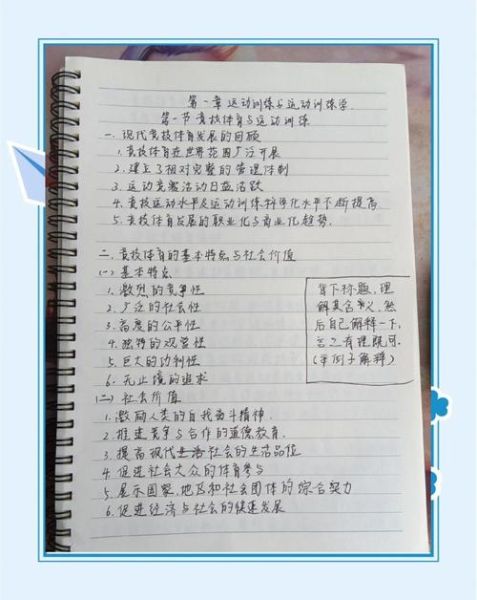 第一章 运动训练与运动训练学
第一节 竞技体育与运动训练
一、现代竞技体育发展的回顾
1. 竞技体育在世界范围广泛开展
2. 建立了相对完整的管理体制
3. 运动竞赛活动日益活跃
4. 竞技运动水平及运动训练科学化水平不断提高
5. 竞技体育发展的职业化与商业化趋势.
二、竞技体育的基本特点与社会价值
(一) 基本特点
1. 激烈的竞争性
2. 广泛的社会性
3. 高度的公平性
4. 独特的观赏性
5. 巨大的功利性
6. 无止境的追求
写下标题, 理
解其含义, 然
后自己解释一下,
言之有理即可.
(举例子解释)
(二) 社会价值
1. 激励人类的自我奋斗精神.
2. 推进竞争与合作的道德教育.
3. 提高现代社会的生活品位
4. 促进社会大众的体育参与
5. 展示国家、地区和社会团体的综合实力
6. 促进经济与社会的快速发展